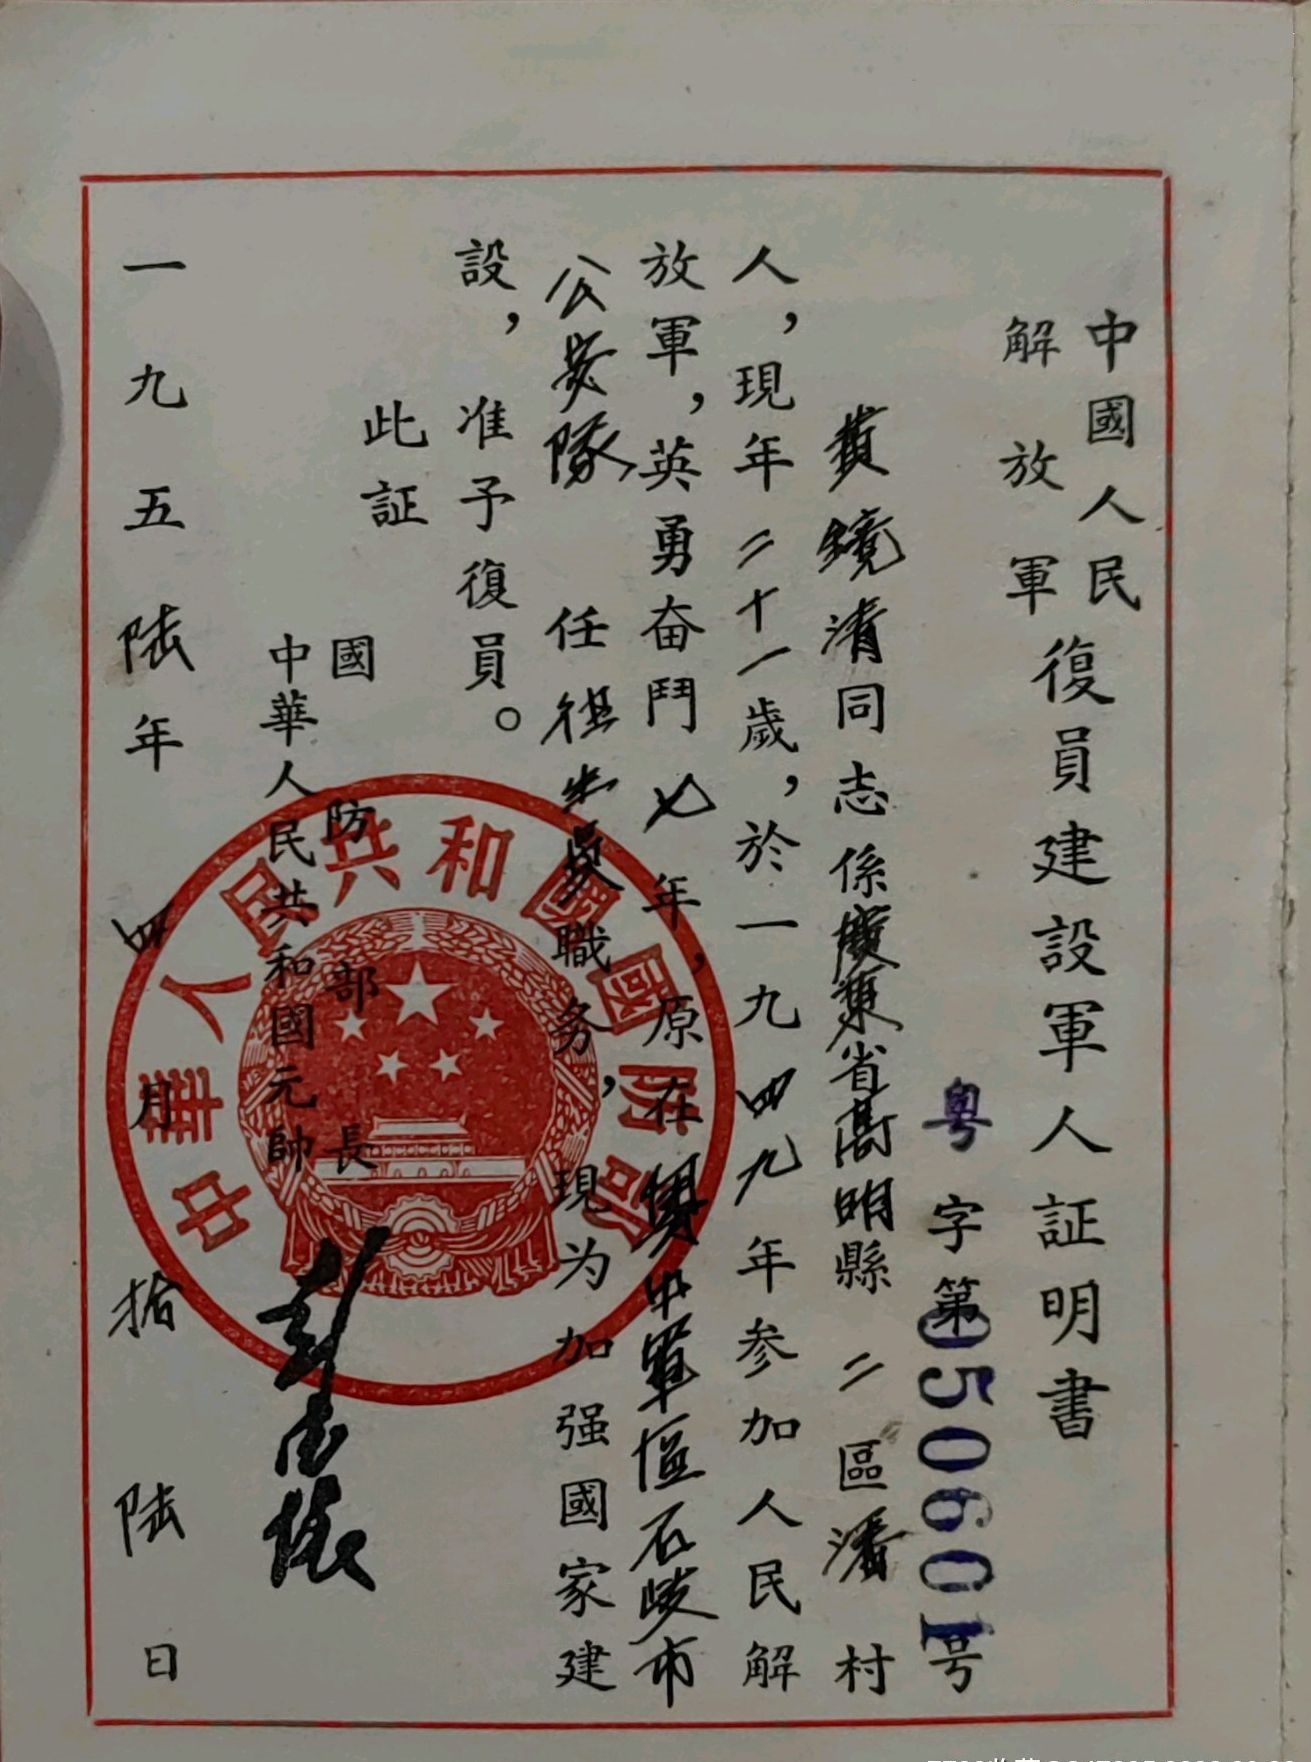 中國人民
解放軍
復員建設軍人証明書
粵字第050601号
黄鏡清同志係廣東省高明縣二區潘村
人，現年二十一歲，於一九四九年参加人民解
放軍，英勇奋鬥七年，原在粤中軍區石岐市
公安隊 任 職务，現为加强國家建
設，准予復員。
此証
國防部長
中華人民共和國元帥
彭德懷
一九五陆年四月拾陆日
中華人民共和國國防部